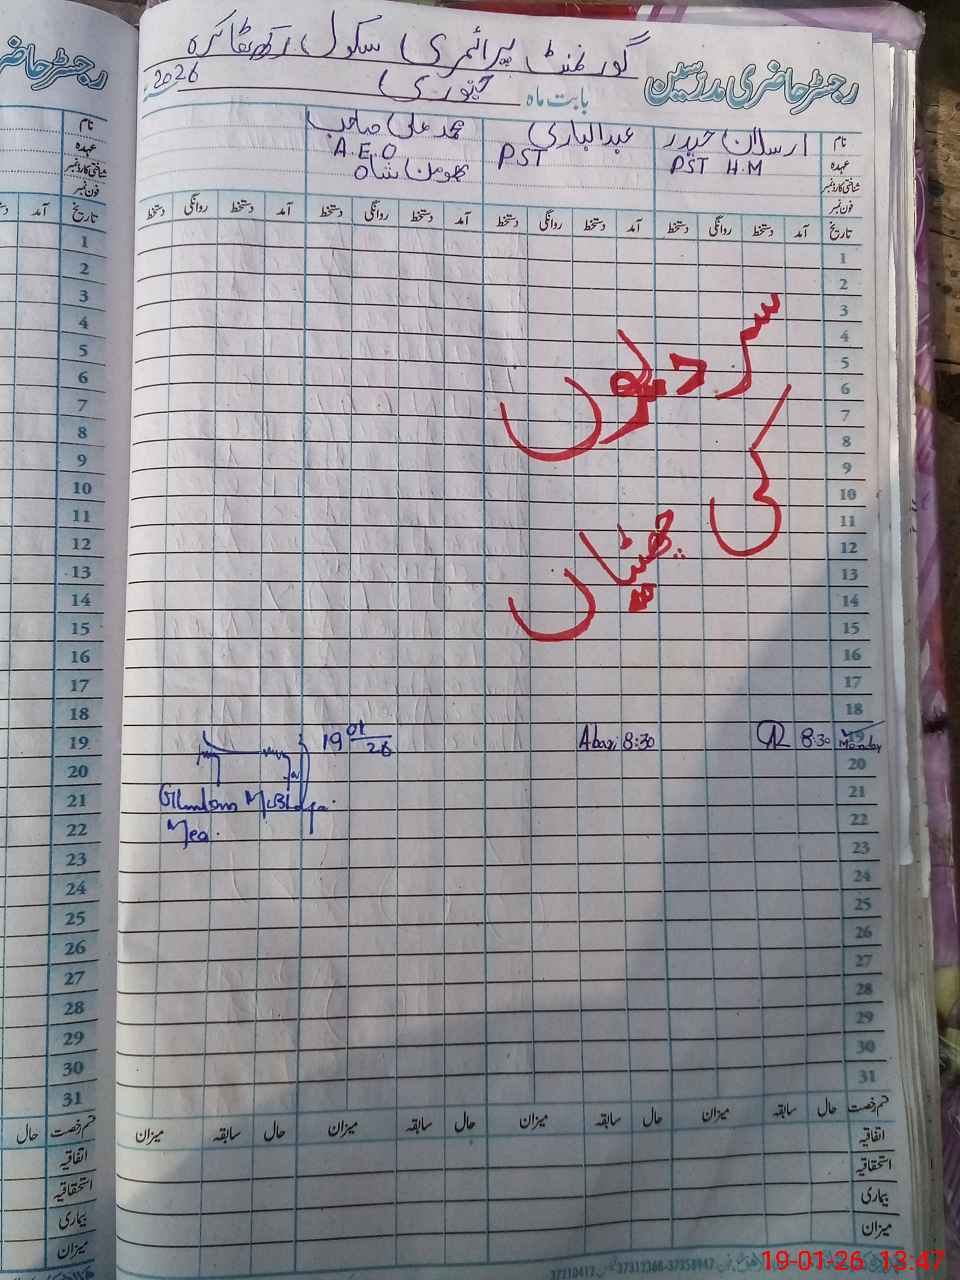 رجسٹر حاضری مدرسین
گورنمنٹ پرائمری سکول رکھ
بابت ماہ جنوری 2026
نام ارسلان حیدر عبدالباری محمد علی صاحب
عہدہ PST H.M PST A.E.O
شناختی کارڈ نمبر بھومن شاہ
فون نمبر
تاریخ آمد دستخط روانگی دستخط آمد دستخط روانگی دستخط آمد دستخط روانگی دستخط آمد دستخط روانگی دستخط
1
2
3
4
5
6
7
8
9
10
11
12
13
14
15
16
17
18
19 Monday 8:30 8:30 19 01 26
20
21
22
23
24
25
26
27
28
29
30
31
سردیوں
کی
چھٹیاں
Mea.
قسم رخصت حال سابقہ میزان حال سابقہ میزان حال سابقہ میزان حال سابقہ میزان
اتفاقیہ
استحقاقیہ
بیماری
میزان
رجسٹر حا
نام
عہدہ
شناختی کارڈ نمبر
فون نمبر
تاریخ آمد
1
2
3
4
5
6
7
8
9
10
11
12
13
14
15
16
17
18
19
20
21
22
23
24
25
26
27
28
29
30
31
قسم رخصت حال
اتفاقیہ
استحقاقیہ
بیماری
میزان
19-01-26 13:47